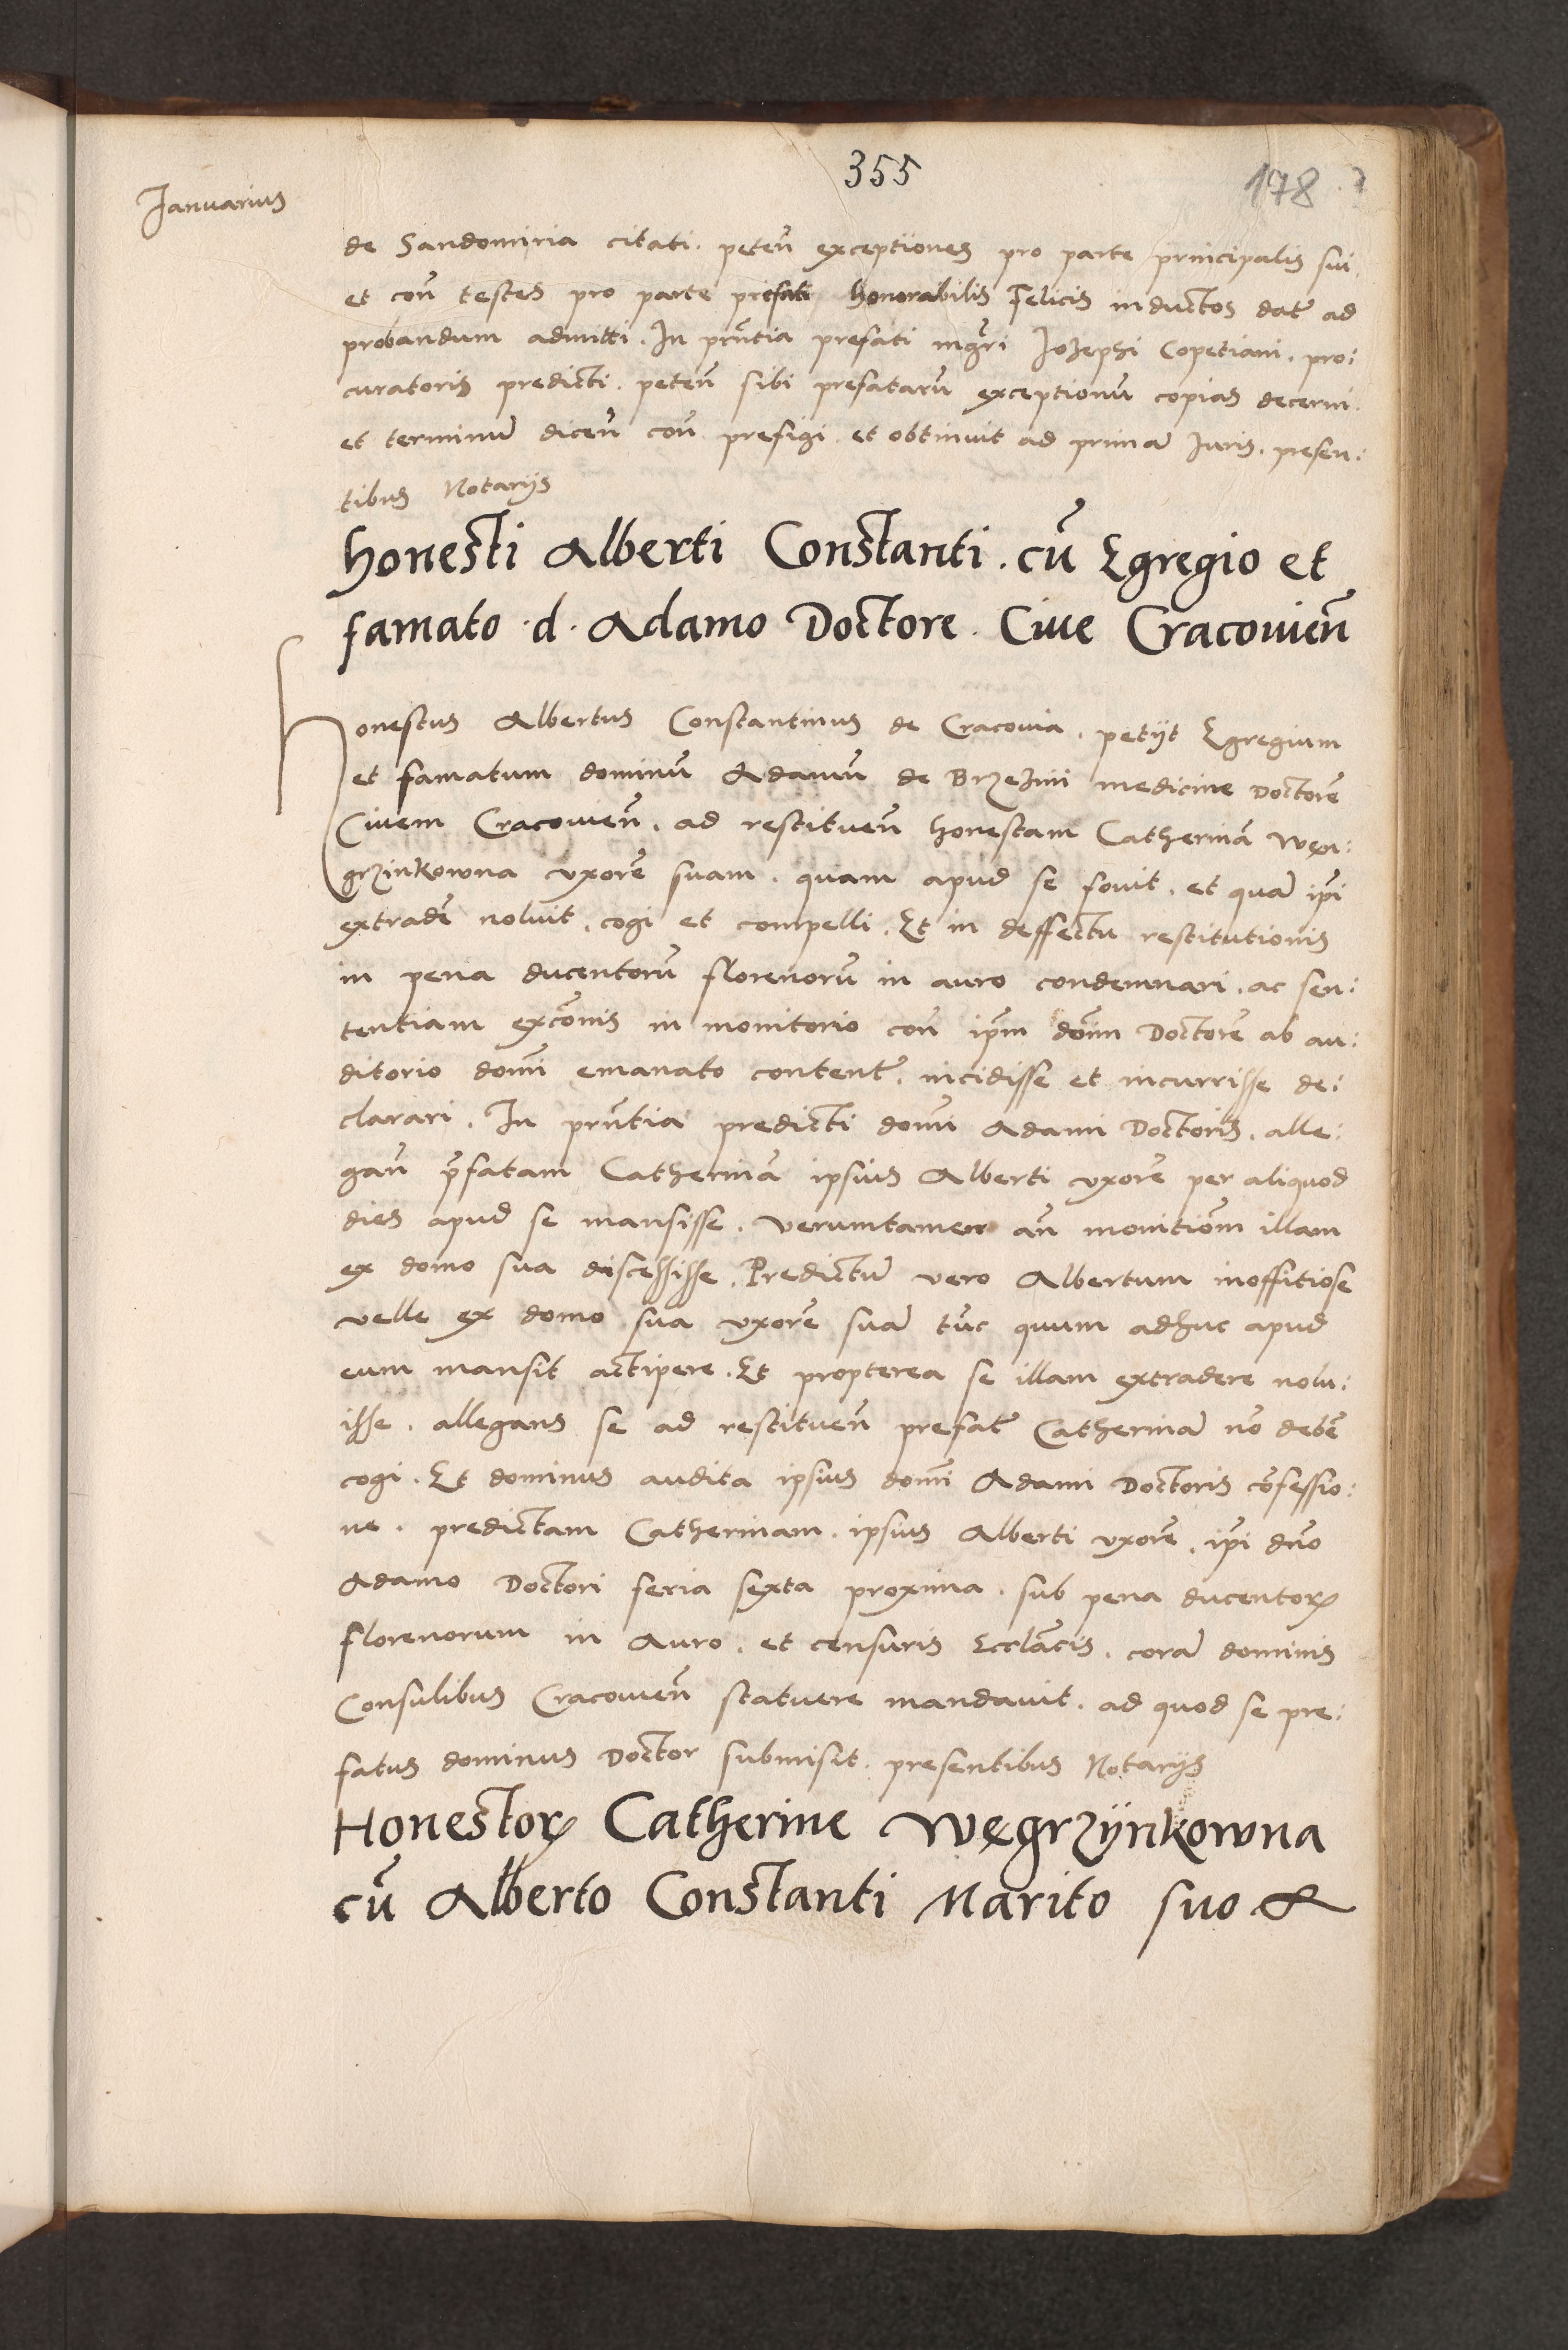 355
178
Januarius
de Sandomiria citati. peteñ exceptiones pro parte principalis sui.
et coñ testes pro parte prefati honorabilis Felicis inductos dar̃ ad
probandum admitti. In pñtia prefati mgr̃i Jozephi Copetiani. pro:
curatoris predicti. peteñ sibi prefatarũ exceptionũ copias decerni.
et terminũ diceñ coñ prefigi et obtinuit ad primã Juris. presen:
tibus Notarijs
honesti Alberti Constanti. cũ Egregio et
famato .d. Adamo Doctore. Ciue Cracouieñ
Honestus Albertus Constantinus de Cracouia. petijt Egregium
et famatum dominũ Adamũ de Brzezini medicine Doctorẽ
Ciuem Cracouieñ. ad restitueñ honestam Catherinã Węn:
grzinkowna vxorẽ suam. quam apud se fouit. et quã ip̃i
extradẽ noluit. cogi et compelli. Et in deffectu restitutionis
in pena ducentorũ florenorũ in auro condemnari. ac sen:
tentiam excõnis in monitorio coñ ip̃m doñm Doctorẽ ab au:
ditorio doñi emanato content̃. incidisse et incurrisse de:
clarari. In pñtia predicti doñi Adami Doctoris. alle:
gañ p̃fatam Catherinã ipsius Alberti vxorẽ per aliquod
dies apud se mansisse. verumtamen añ monitioñm illam
ex domo sua discessisse. Predictũ vero Albertum inoffitiose
velle ex domo sua vxorẽ suã tũc quum adhuc apud
eum mansit actipere. Et propterea se illam extradere nolu:
isse. allegans se ad restitueñ prefat̃ Catherinã nõ debẽ
cogi. Et dominus audita ipsius doñi Adami Doctoris cõfessio:
ne. predictam Catherinam. ipsius Alberti vxorẽ. ip̃i dño
Adamo Doctori feria sexta proxima. sub pena ducentorꝝ
florenorum in Auro. et censuris Eccl̃acis. corã dominis
Consulibus Cracouieñ statuere mandauit. ad quod se pre:
fatus dominus Doctor submisit. presentibus Notarijs
Honestorꝝ Catherine Węgrzÿnkowna
cũ Alberto Constanti Marito suo